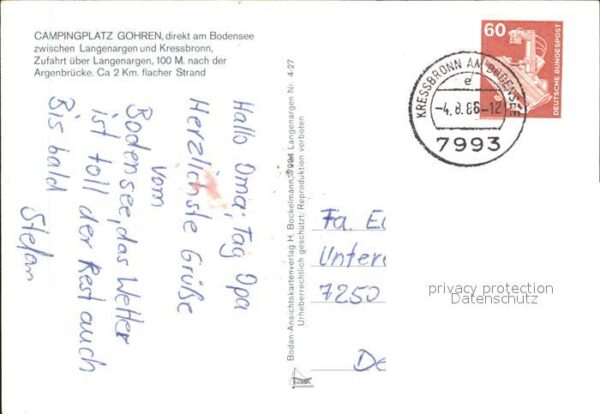 CAMPINGPLATZ GOHREN, direkt am Bodensee
zwischen Langenargen und Kressbronn,
Zufahrt über Langenargen, 100 M. nach der
Argenbrücke. Ca 2 Km. flacher Strand
Hallo Oma, Tag Opa
Herzlichste Grüße
vom
Bodensee, das Wetter
ist toll der Rest auch
Bis bald
Stefan
Bodan-Ansichtskartenverlag H. Bockelmann, 7994 Langenargen Nr. 4-27
Urheberrechtlich geschützt: Reproduktion verboten
60
DEUTSCHE BUNDESPOST
KRESSBRONN AM BODENSEE
e
-4.8.86-12
7993
Fa. E
Unter
7250
De
privacy protection
Datenschutz